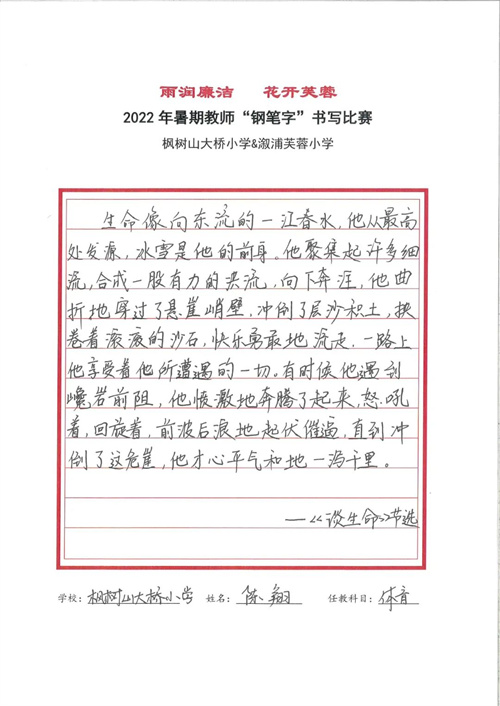 雨润廉洁 花开芙蓉
2022年暑期教师“钢笔字”书写比赛
枫树山大桥小学&溆浦芙蓉小学
生命像向东流的一江春水,他从最高
处发源,冰雪是他的前身。他聚集起许多细
流,合成一股有力的洪流,向下奔注,他曲
折地穿过了悬崖峭壁,冲倒了层沙积土,挟
卷着滚滚的沙石,快乐勇敢地流走.一路上
他享受着他所遭遇的一切。有时候他遇到
巉岩前阻,他愤激地奔腾了起来,怒吼
着,回旋着,前波后浪地起伏催逼,直到冲
倒了这危崖,他才心平气和地一泻千里。
——《谈生命》节选
学校:枫树山大桥小学 姓名:陈翔 任教科目:体音